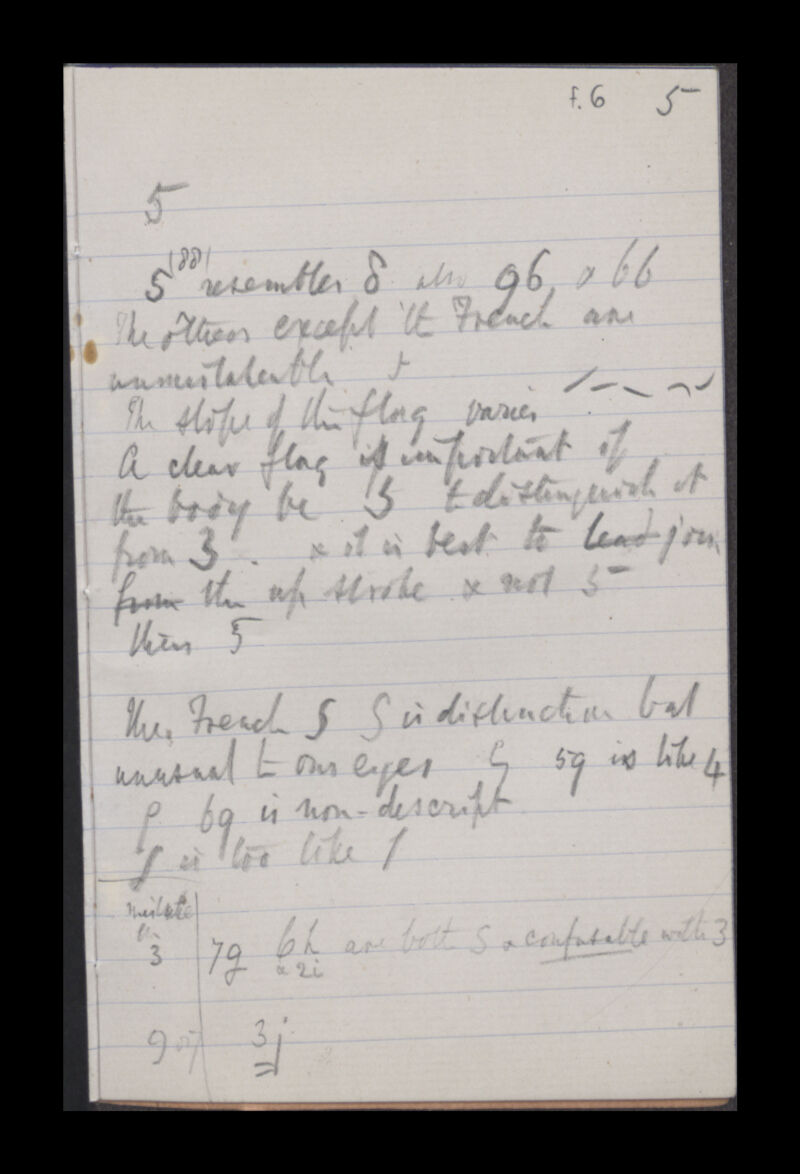 f.6 5
5
5 (88) resembles 8 also 96 & 66
The others except the French are
unmistakeable
The slope of the flag varies
A clear flag is important if
the body be 3 to distinguish it
from 3. & it is best to lead join
from the up stroke & not 5
thus 5
The French 5 S is distinction but
unusual to our eyes 5g is like 4
6g is non-descript
is too like 1
mistake
for
3 7g 6h are both 5 & confusable with 3
& 2i
9 or 7 3j